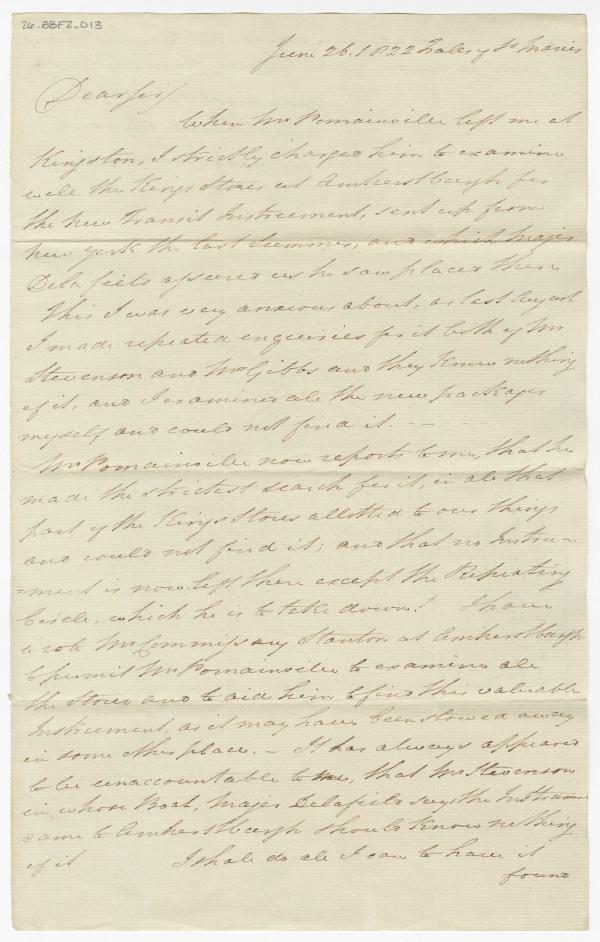 26-BBF2-013
June 26. 1822 Falls of St Maries
Dear Sir/
When Mr Pomainville left me at
Kingston, I strictly charged him to examine
well the Kings Stores at Amherstburgh for
the new Transit Instrument, sent up from
New York the last Summer, and which Major
Delafield assured us he saw placed there
This I was very anxious about, as last August
I made repeated enquiries for it both of Mr
Stevenson and Mr Gibbs and they knew nothing
of it, and I examined all the new packages
myself and could not find it. - - -
Mr Pomainville now reports to me, that he
made the strictest search for it, in all that
part of the Kings Stores allotted to our things
and could not find it; and that no Instru=
=ment is now left there except the Repeating
Circle, which he is to take down. I have
wrote Mr Commissary Stanton at Amherstburgh
to permit Mr Pomainville to examine all
the Stores and to aid him to find this valuable
Instrument, as it may have been stowed away
in some other place. - It has always appeared
to be unaccountable to me, that Mr Stevenson
in whose Boat, Major Delafield says the Instrument
came to Amherstburgh should know nothing
of it I shall do all I can to have it
found